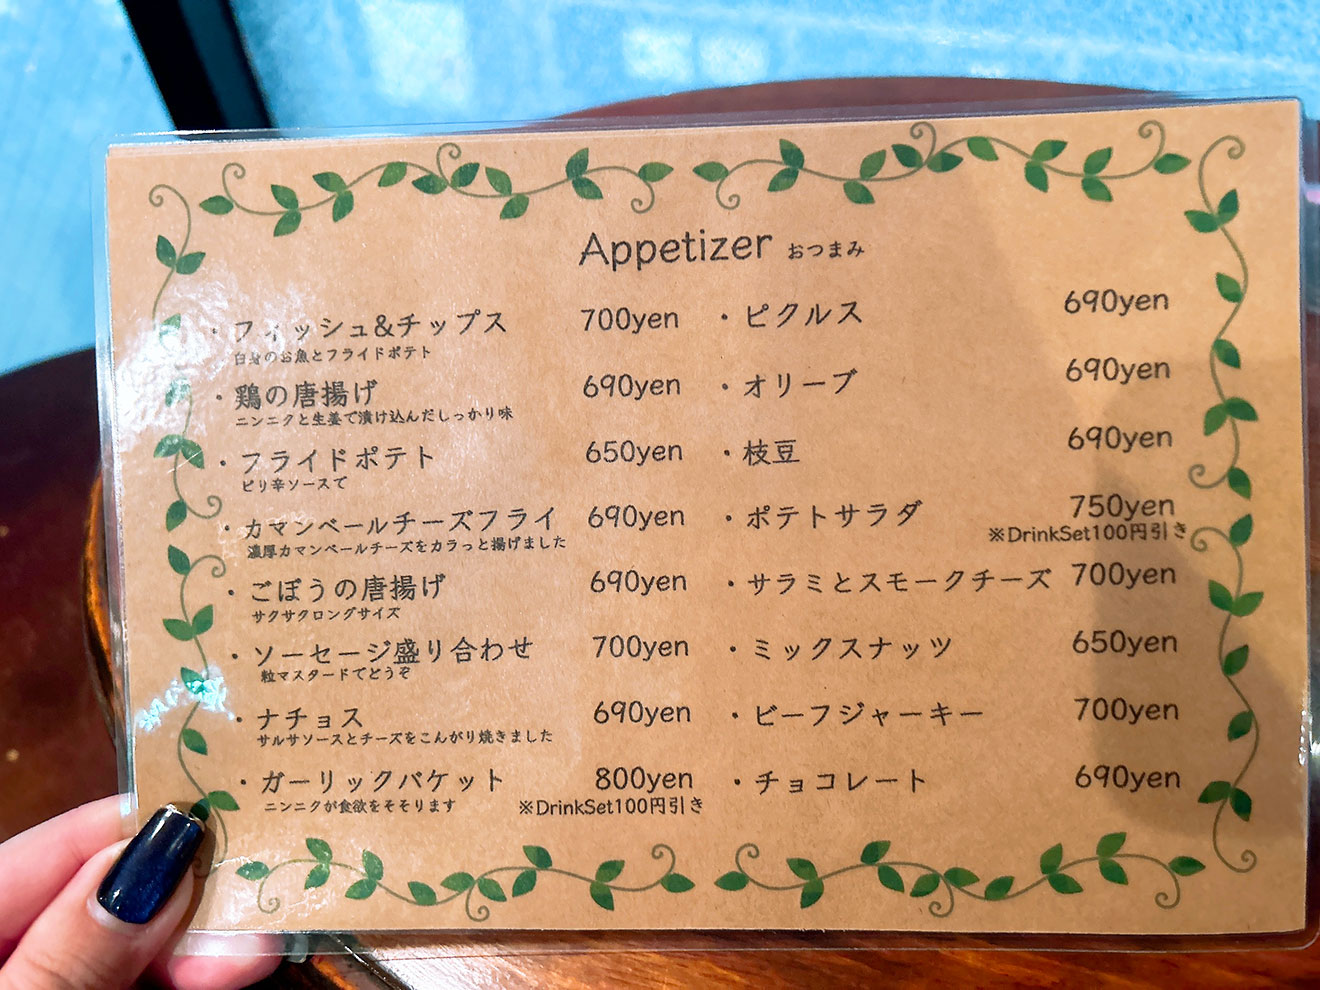 Appetizer おつまみ
・フィッシュ&チップス 700yen
白身のお魚とフライドポテト
・鶏の唐揚げ 690yen
ニンニクと生姜で漬け込んだしっかり味
・フライドポテト 650yen
ピリ辛ソースで
・カマンベールチーズフライ 690yen
濃厚カマンベールチーズをカラっと揚げました
・ごぼうの唐揚げ 690yen
サクサクロングサイズ
・ソーセージ盛り合わせ 700yen
粒マスタードでどうぞ
・ナチョス 690yen
サルサソースとチーズをこんがり焼きました
・ガーリックバケット 800yen
ニンニクが食欲をそそります ※DrinkSet100円引き
・ピクルス 690yen
・オリーブ 690yen
・枝豆 690yen
・ポテトサラダ 750yen
※DrinkSet100円引き
・サラミとスモークチーズ 700yen
・ミックスナッツ 650yen
・ビーフジャーキー 700yen
・チョコレート 690yen